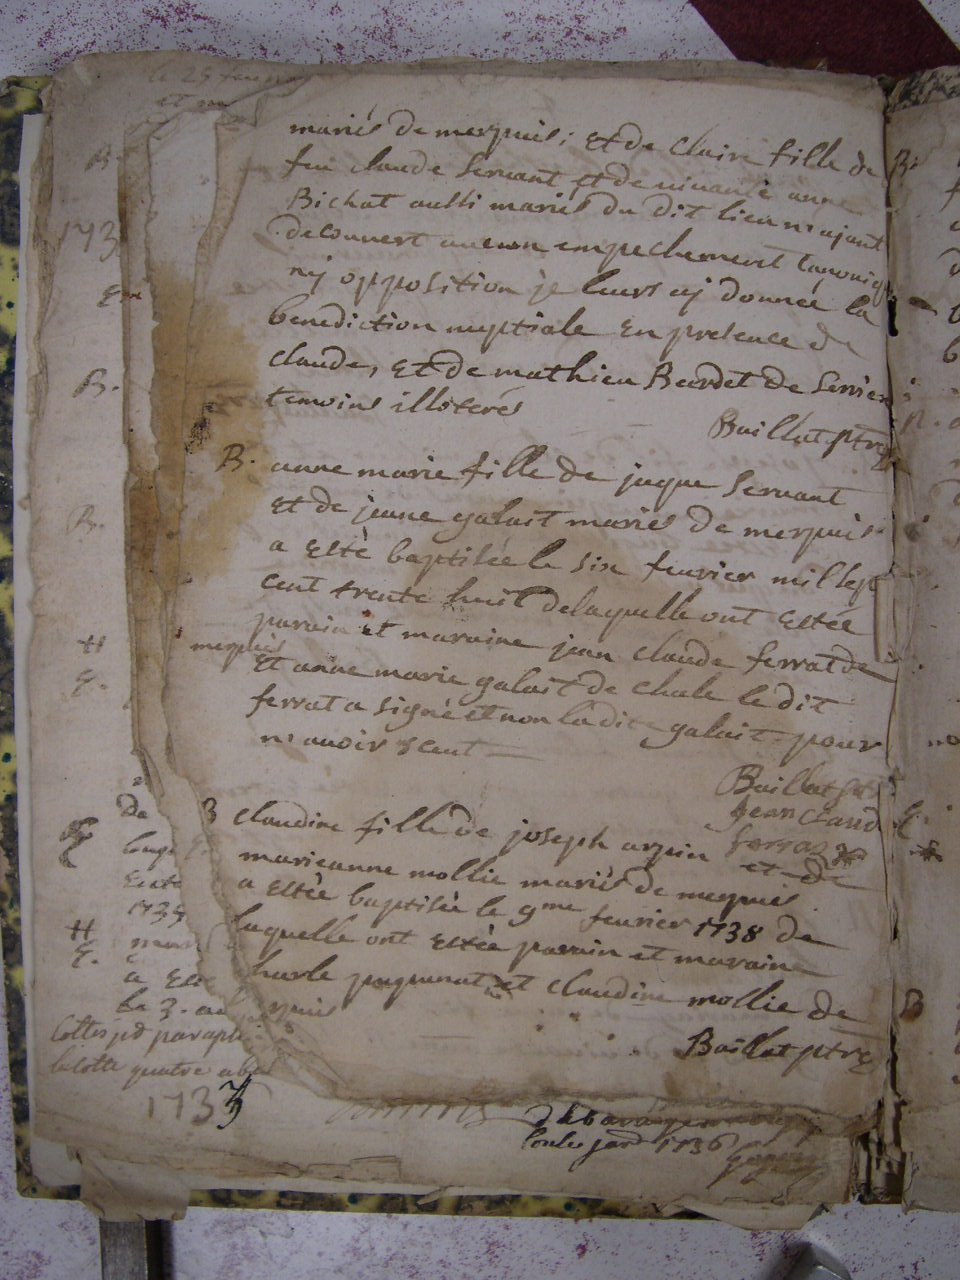 le 25
mariés de merpuis; Et de Claire fille de
feu claude Servant et de vivante anne
Bichat aussi mariés du dit lieu n'ajant
decouvert aucun empechement canoniq
nj opposition je leurs aj donneé la
benediction nuptiale En presence de
claude, Et de mathieu Beardet de Serrier
temoins illiterés
Baillat ptre
B. anne marie fille de jaque Servant
Et de jeane galait mariés de merpuis
a Estè baptisée le six fevrier mil sep
cent trente huit delaquelle ont Estée
parain et maraine jean claude ferrat de
merpuis
Et anne marie galait de Chale le dit
ferrat a signé et non la dite galait pour
n'avoir sceut
Baillat ptr
Jean Claud
ferras
B claudine fille de joseph arpin et de
marieanne mollie mariés de merpuis
a Estèe baptisèe le 9me fevrier 1738 de
laquelle ont Estèe parain et maraine
harle paquenat et claudine mollie de
rpuis
Baillat ptre
B.
173
B.
B.
H
E.
de
1735
H
E.
mar
a Est
le 3.
Cottes pd paraph
la cotte quatre
1737
1736